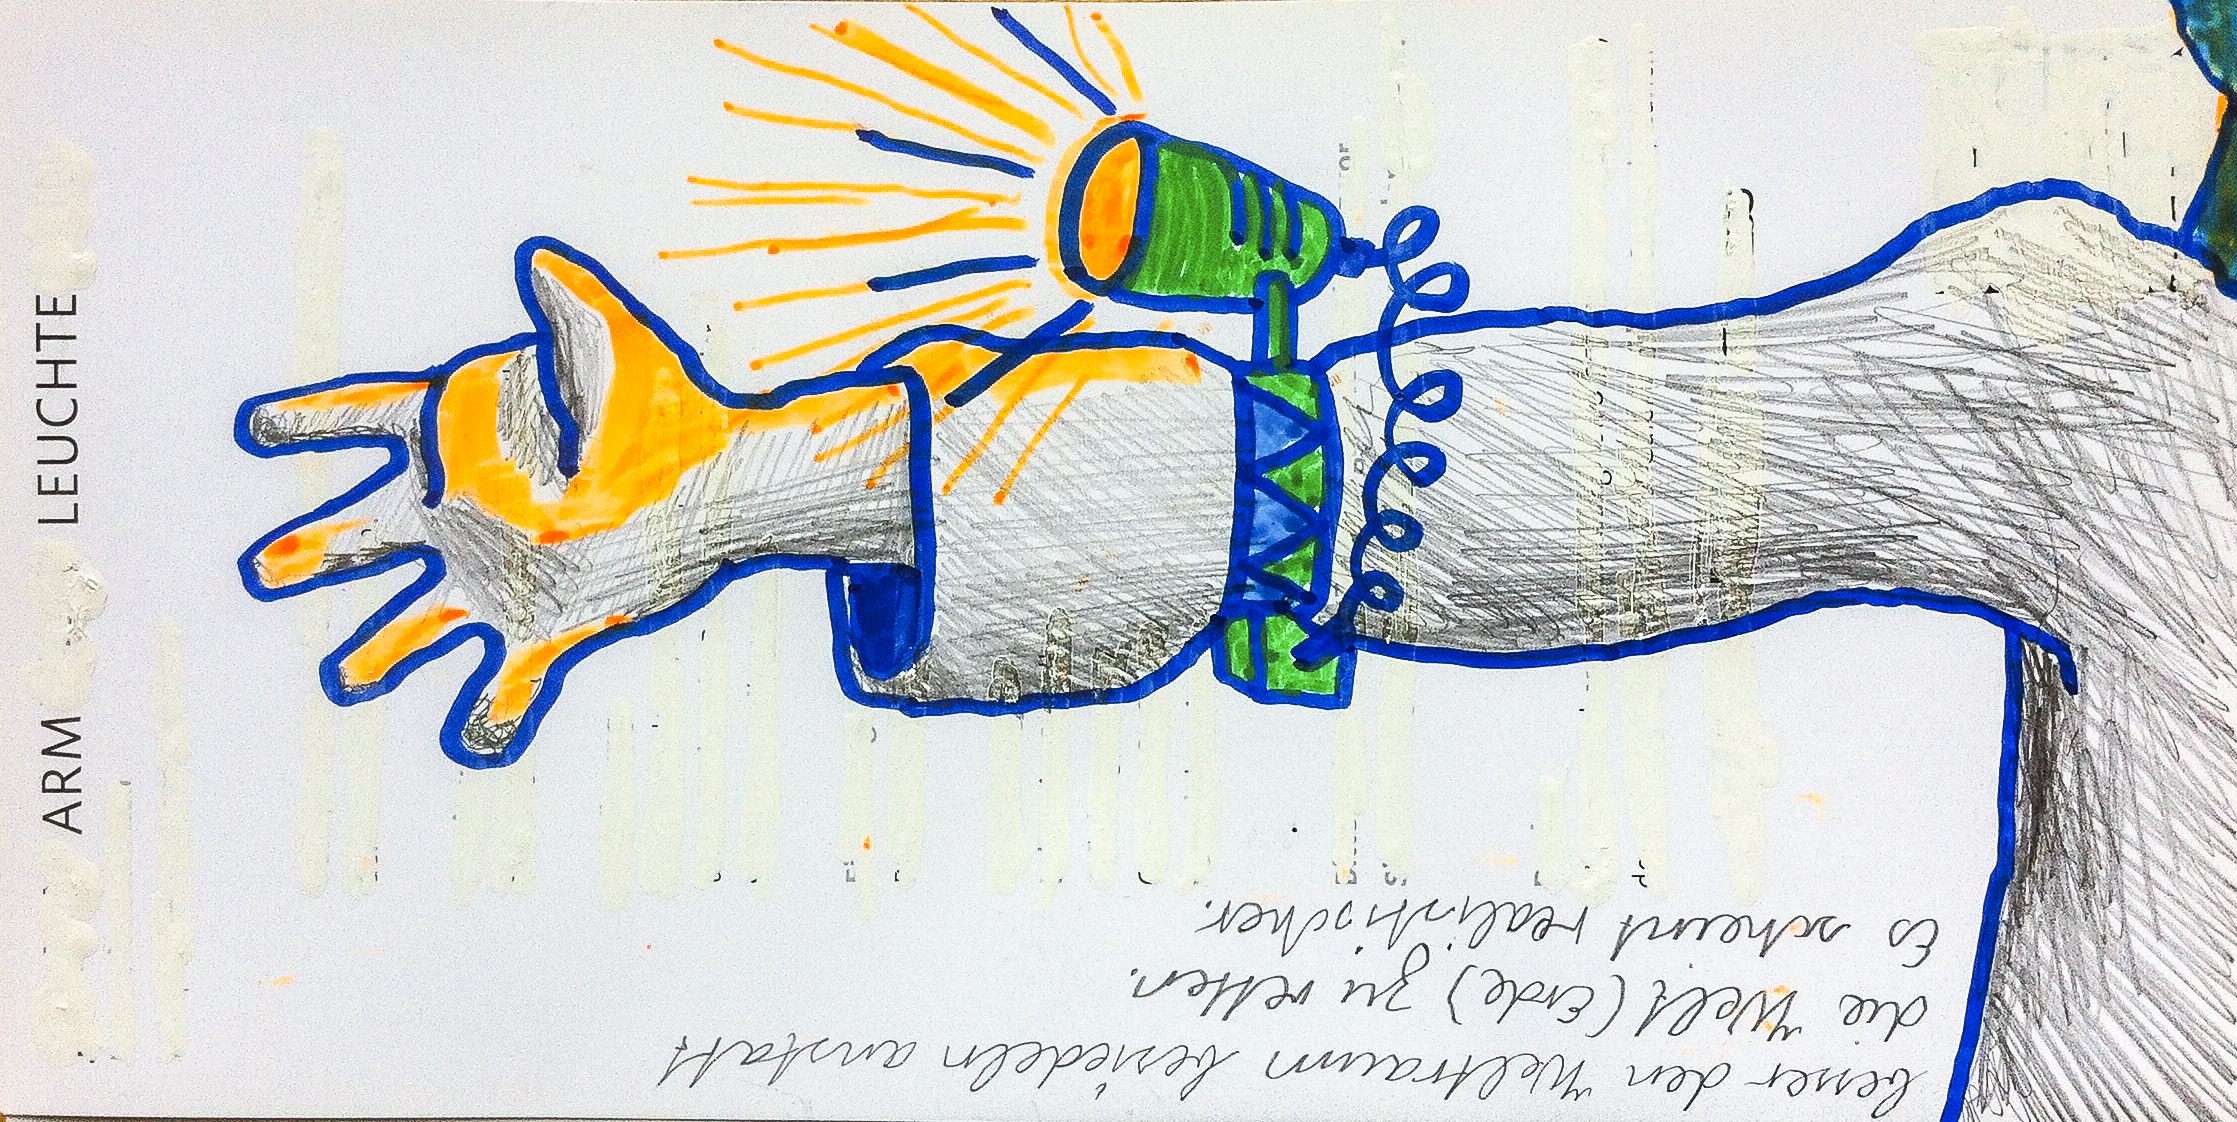 ARM LEUCHTE
besser den Weltraum besiedeln anstatt
die Welt (Erde) zu retten.
Es scheint realistischer.